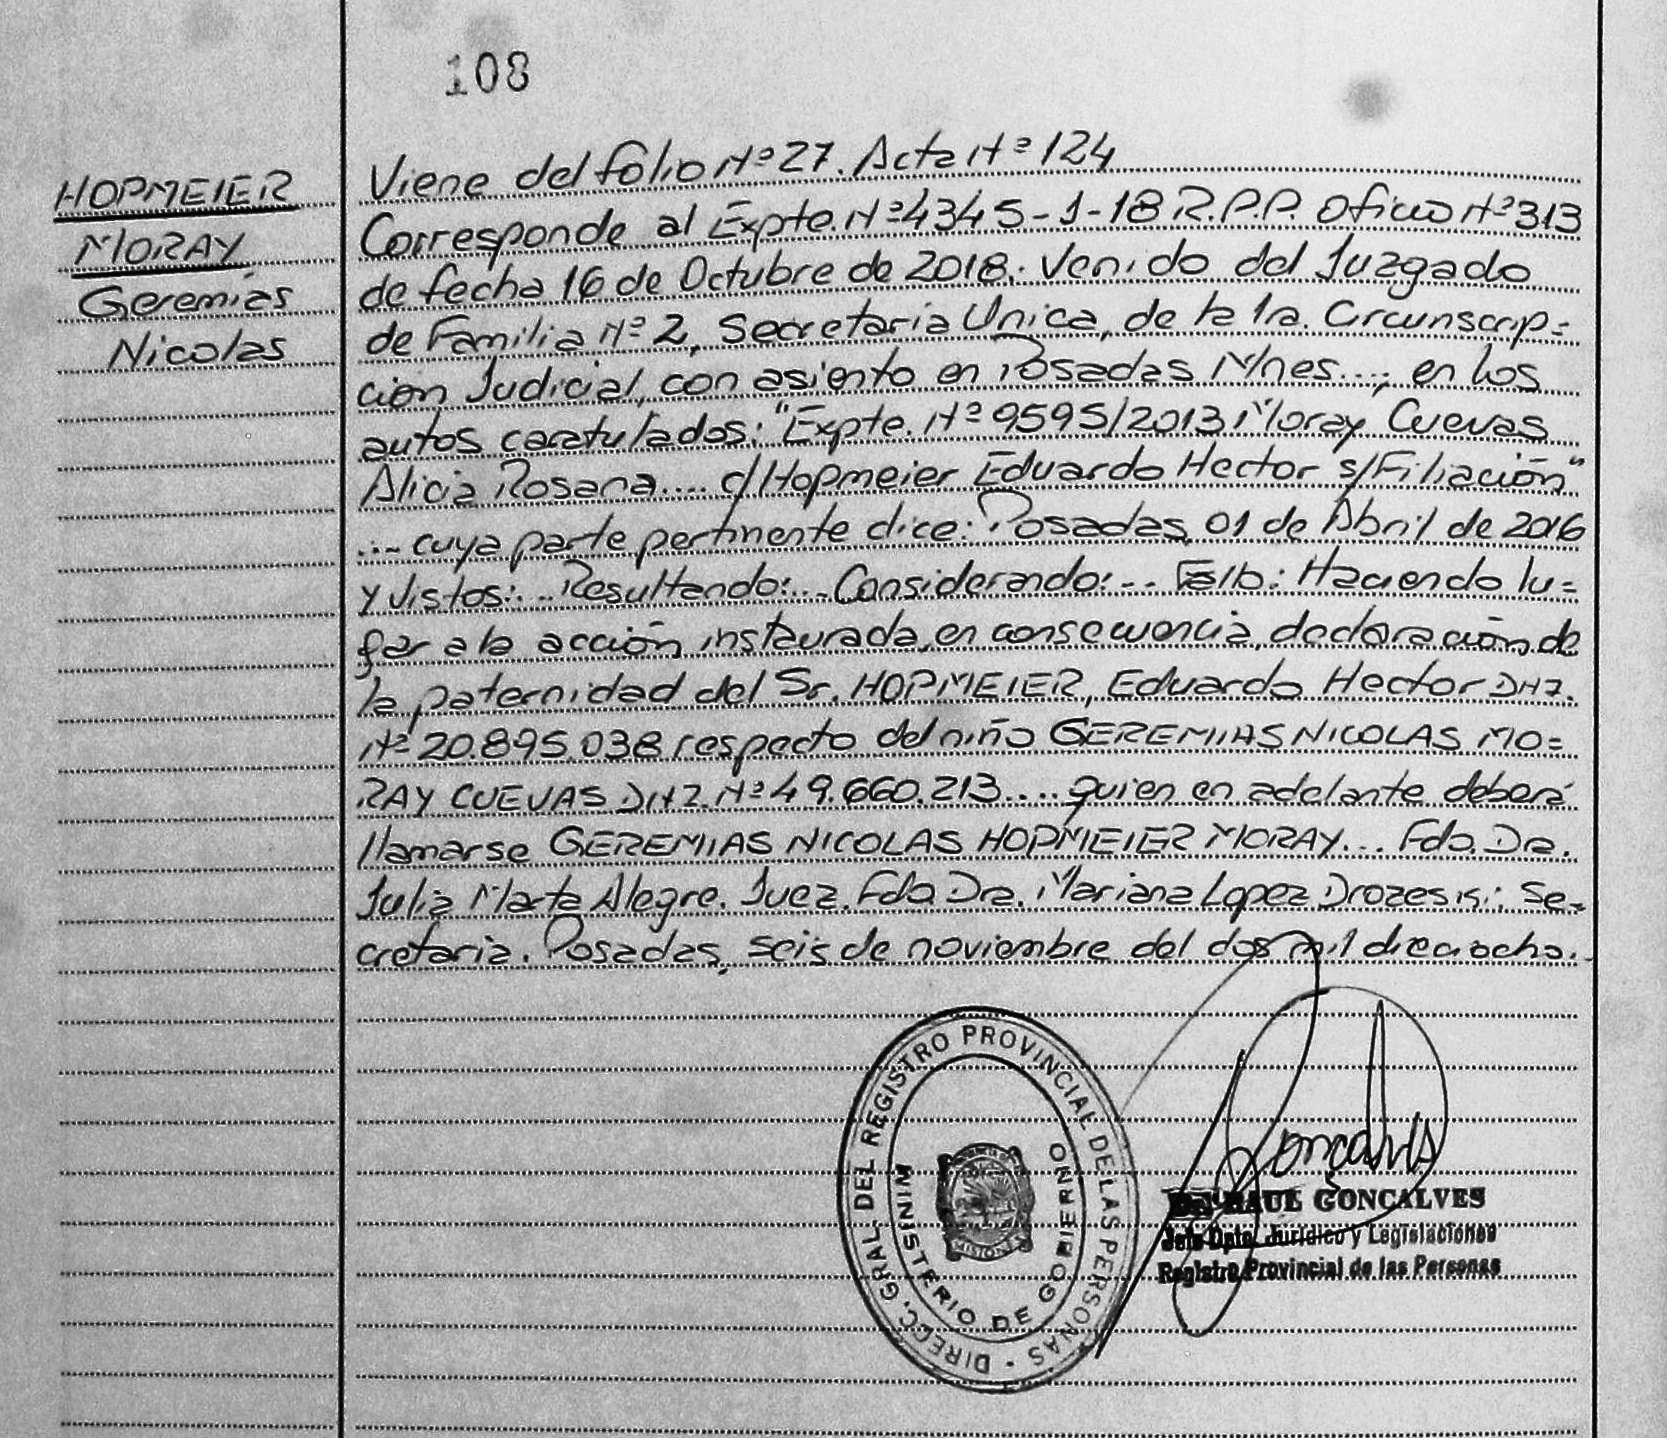 108
HOPMEIER
MORAY
Geremías
Nicolas
Viene del folio Nº 27. Acta Nº 124
Corresponde al Expte. Nº 4345-1-18 R.P.P. Oficio Nº 313
de fecha 16 de Octubre de 2018.: Venido del Juzgado
de Familia Nº 2, Secretaria Unica, de la 1ra. Circunscrip=
cion Judicial, con asiento en Posadas Mnes..., en los
autos caratulados: "Expte. Nº 9595/2013 Moray Cuevas
Alicia Rosana.... c/Hopmeier Eduardo Hector s/Filiación"
.... cuya parte pertinente dice: Posadas, 01 de Abril de 2016
y Vistos:... Resultando:... Considerando:... Fallo: Haciendo lu=
gar a la acción instaurada, en consecuencia, declaración de
la paternidad del Sr. HOPMEIER, Eduardo Hector DNI.
Nº 20.895.038 respecto del niño GEREMIAS NICOLAS MO=
RAY CUEVAS DNI. Nº 49.660.213.... quien en adelante deberá
llamarse GEREMIAS NICOLAS HOPMEIER MORAY... Fdo. Dra.
Julia Marta Alegre. Juez. Fdo. Dra. Mariana Lopez Se=
cretaria. Posadas, seis de noviembre del dos mil dieciocho.
DIRECC. GRAL. DEL REGISTRO PROVINCIAL DE LAS PERSONAS -
MINISTERIO DE GOBIERNO
MISIONES
Goncalves
Dr. RAUL GONCALVES
Jefe Dpto. Jurídico y Legislaciones
Registro Provincial de las Personas